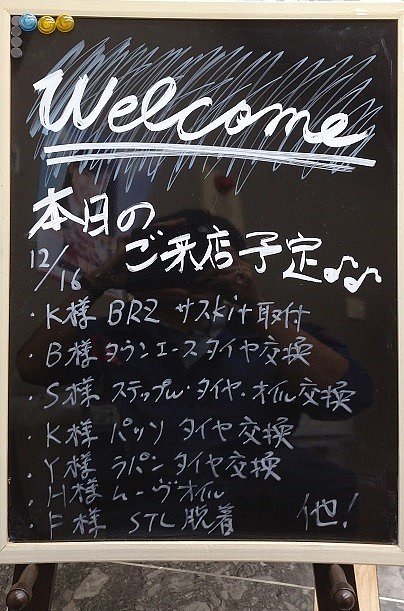 Welcome
本日の
ご来店予定♪♪
12/16
・K様 BRZ サスkit取付
・B様 タウンエース タイヤ交換
・S様 ステップル・タイヤ・オイル交換
・K様 パッソ タイヤ交換
・Y様 ラパン タイヤ交換
・H様 ムーヴ オイル
・F様 STL脱着 他!